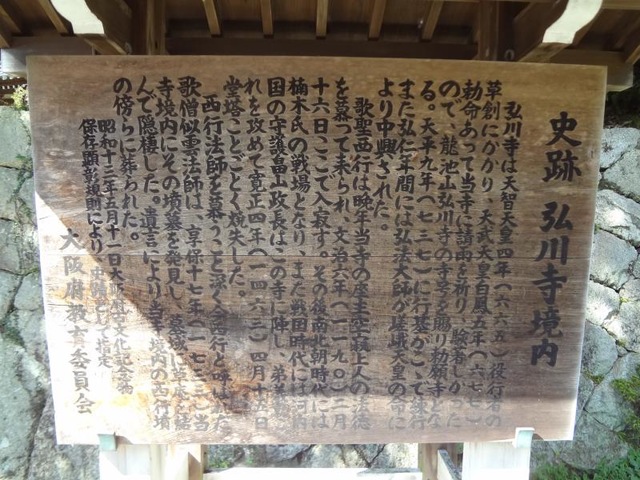 史跡 弘川寺境内
弘川寺は天智天皇四年(六六五)役行者の
草創にかかり、天武天皇白鳳五年(六七七)
勅命あって当寺に請雨を祈り、験著しかった
ので、龍池山弘川寺の寺号を賜り勅願寺とな
る。天平九年(七三七)に行基がここで修行
また弘仁年間には弘法大師が嵯峨天皇の命に
より中興された。
歌聖西行は晩年当寺の座主空寂上人の法徳
を慕って来られ、文治六年(一一九〇)二月
十六日ここで入寂す。その後南北朝時代には
楠木氏の戦場となり、また戦国時代には河内
国の守護畠山政長は、この寺に陣し、弟義就こ
れを攻めて寛正四年(一四六三)四月十五日
堂塔ことごとく焼失した。
西行法師を慕うこと深く今西行と呼ばれた
歌僧似雲法師は、享保十七年(一七三二)当
寺境内にその墳墓を発見し、墓域に草庵を結
んで隠棲した。遺言により当寺境内の西行墳
の傍らに葬られた。
昭和十三年五月十一日大阪府
保存顕彰規則により、史跡として指定
大阪府教育委員会